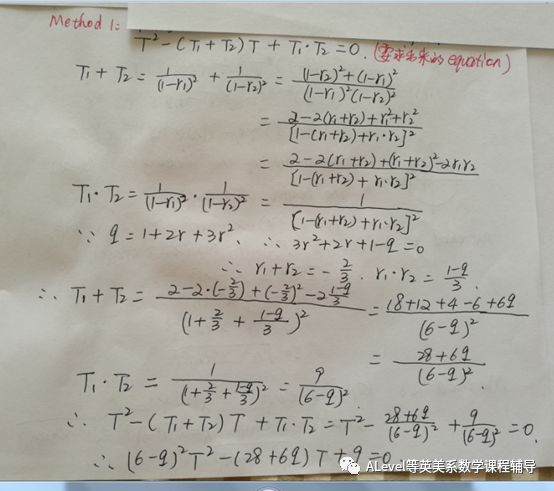 Method 1:
T² - (T₁+T₂)T + T₁·T₂ = 0. (要求出来的equation)
T₁+T₂ = 1/(1-r₁)² + 1/(1-r₂)² = ((1-r₂)²+(1-r₁)²)/((1-r₁)²(1-r₂)²)
= (2-2(r₁+r₂)+r₁²+r₂²)/[1-(r₁+r₂)+r₁·r₂]²
= (2-2(r₁+r₂)+(r₁+r₂)²-2r₁r₂)/[1-(r₁+r₂)+r₁·r₂]²
T₁·T₂ = 1/(1-r₁)² · 1/(1-r₂)² = 1/[1-(r₁+r₂)+r₁·r₂]²
∵ q = 1+2r+3r². ∴ 3r²+2r+1-q=0
∴ r₁+r₂ = -2/3. r₁·r₂ = (1-q)/3.
∴ T₁+T₂ = (2-2·(-2/3)+(-2/3)²-2(1-q)/3)/(1+2/3+(1-q)/3)² = (18+12+4-6+6q)/(6-q)²
= (28+6q)/(6-q)².
T₁·T₂ = 1/(1+2/3+(1-q)/3)² = 9/(6-q)².
∴ T²-(T₁+T₂)T+T₁·T₂ = T² - (28+6q)/(6-q)² + 9/(6-q)² = 0.
∴ (6-q)²T²-(28+6q)T+9=0.
ALevel等英美系数学课程辅导